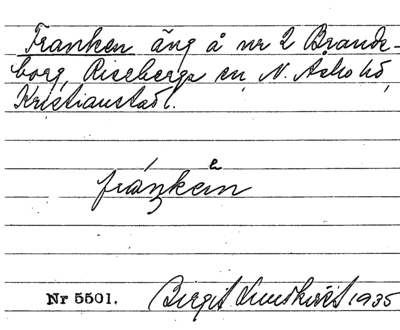 Franken äng å nr 2 Brande-
borg, Riseberga sn, N. Åsbo hd,
Kristianstad l.
fránkein
e
Nr 5501. Birgit Lundkvist 1935